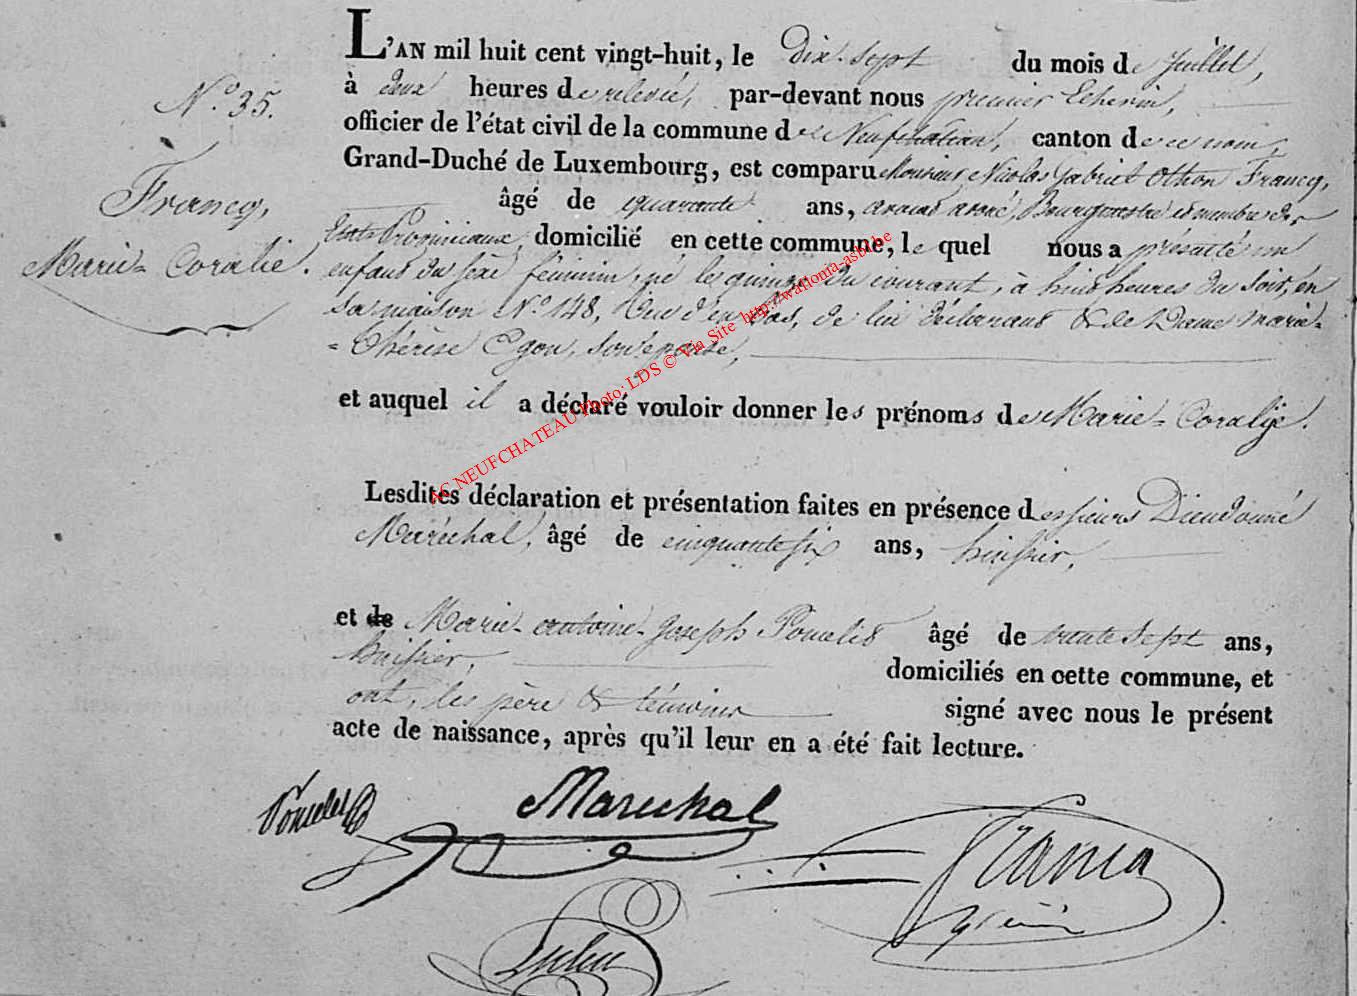 N.° 35.
Francq,
Marie-Coralie.
L'AN mil huit cent vingt-huit, le Dix-sept du mois de juillet,
à deux heures de relevée, par-devant nous premier Echevin,
officier de l'état civil de la commune de Neufchateau, canton de ce nom,
Grand-Duché de Luxembourg, est comparu Monsieur Nicolas Gabriel Othon Francq,
âgé de quarante ans, avocat avoué, Bourgmestre & membre des
Etats Provinciaux, domicilié en cette commune, lequel nous a présenté un
enfant du sexe féminin, né le quinze du courant, à huit heures du soir, en
sa maison N.° 148, Rue d'en bas, de lui déclarant & de Dame Marie-
-Thérèse Egon, son épouse,
et auquel il a déclaré vouloir donner les prénoms de Marie-Coralie.
Lesdites déclaration et présentation faites en présence des sieurs Dieudonné
Maréchal, âgé de cinquante six ans, huissier,
et de Marie-antoine-Joseph Poncelet âgé de trente sept ans,
huissier, domiciliés en cette commune, et
ont, les père & témoins signé avec nous le présent
acte de naissance, après qu'il leur en a été fait lecture.
Poncelet Marechal Francq
AC NEUFCHATEAU Photo: LDS © Via Site http://wallonia-asbl.be